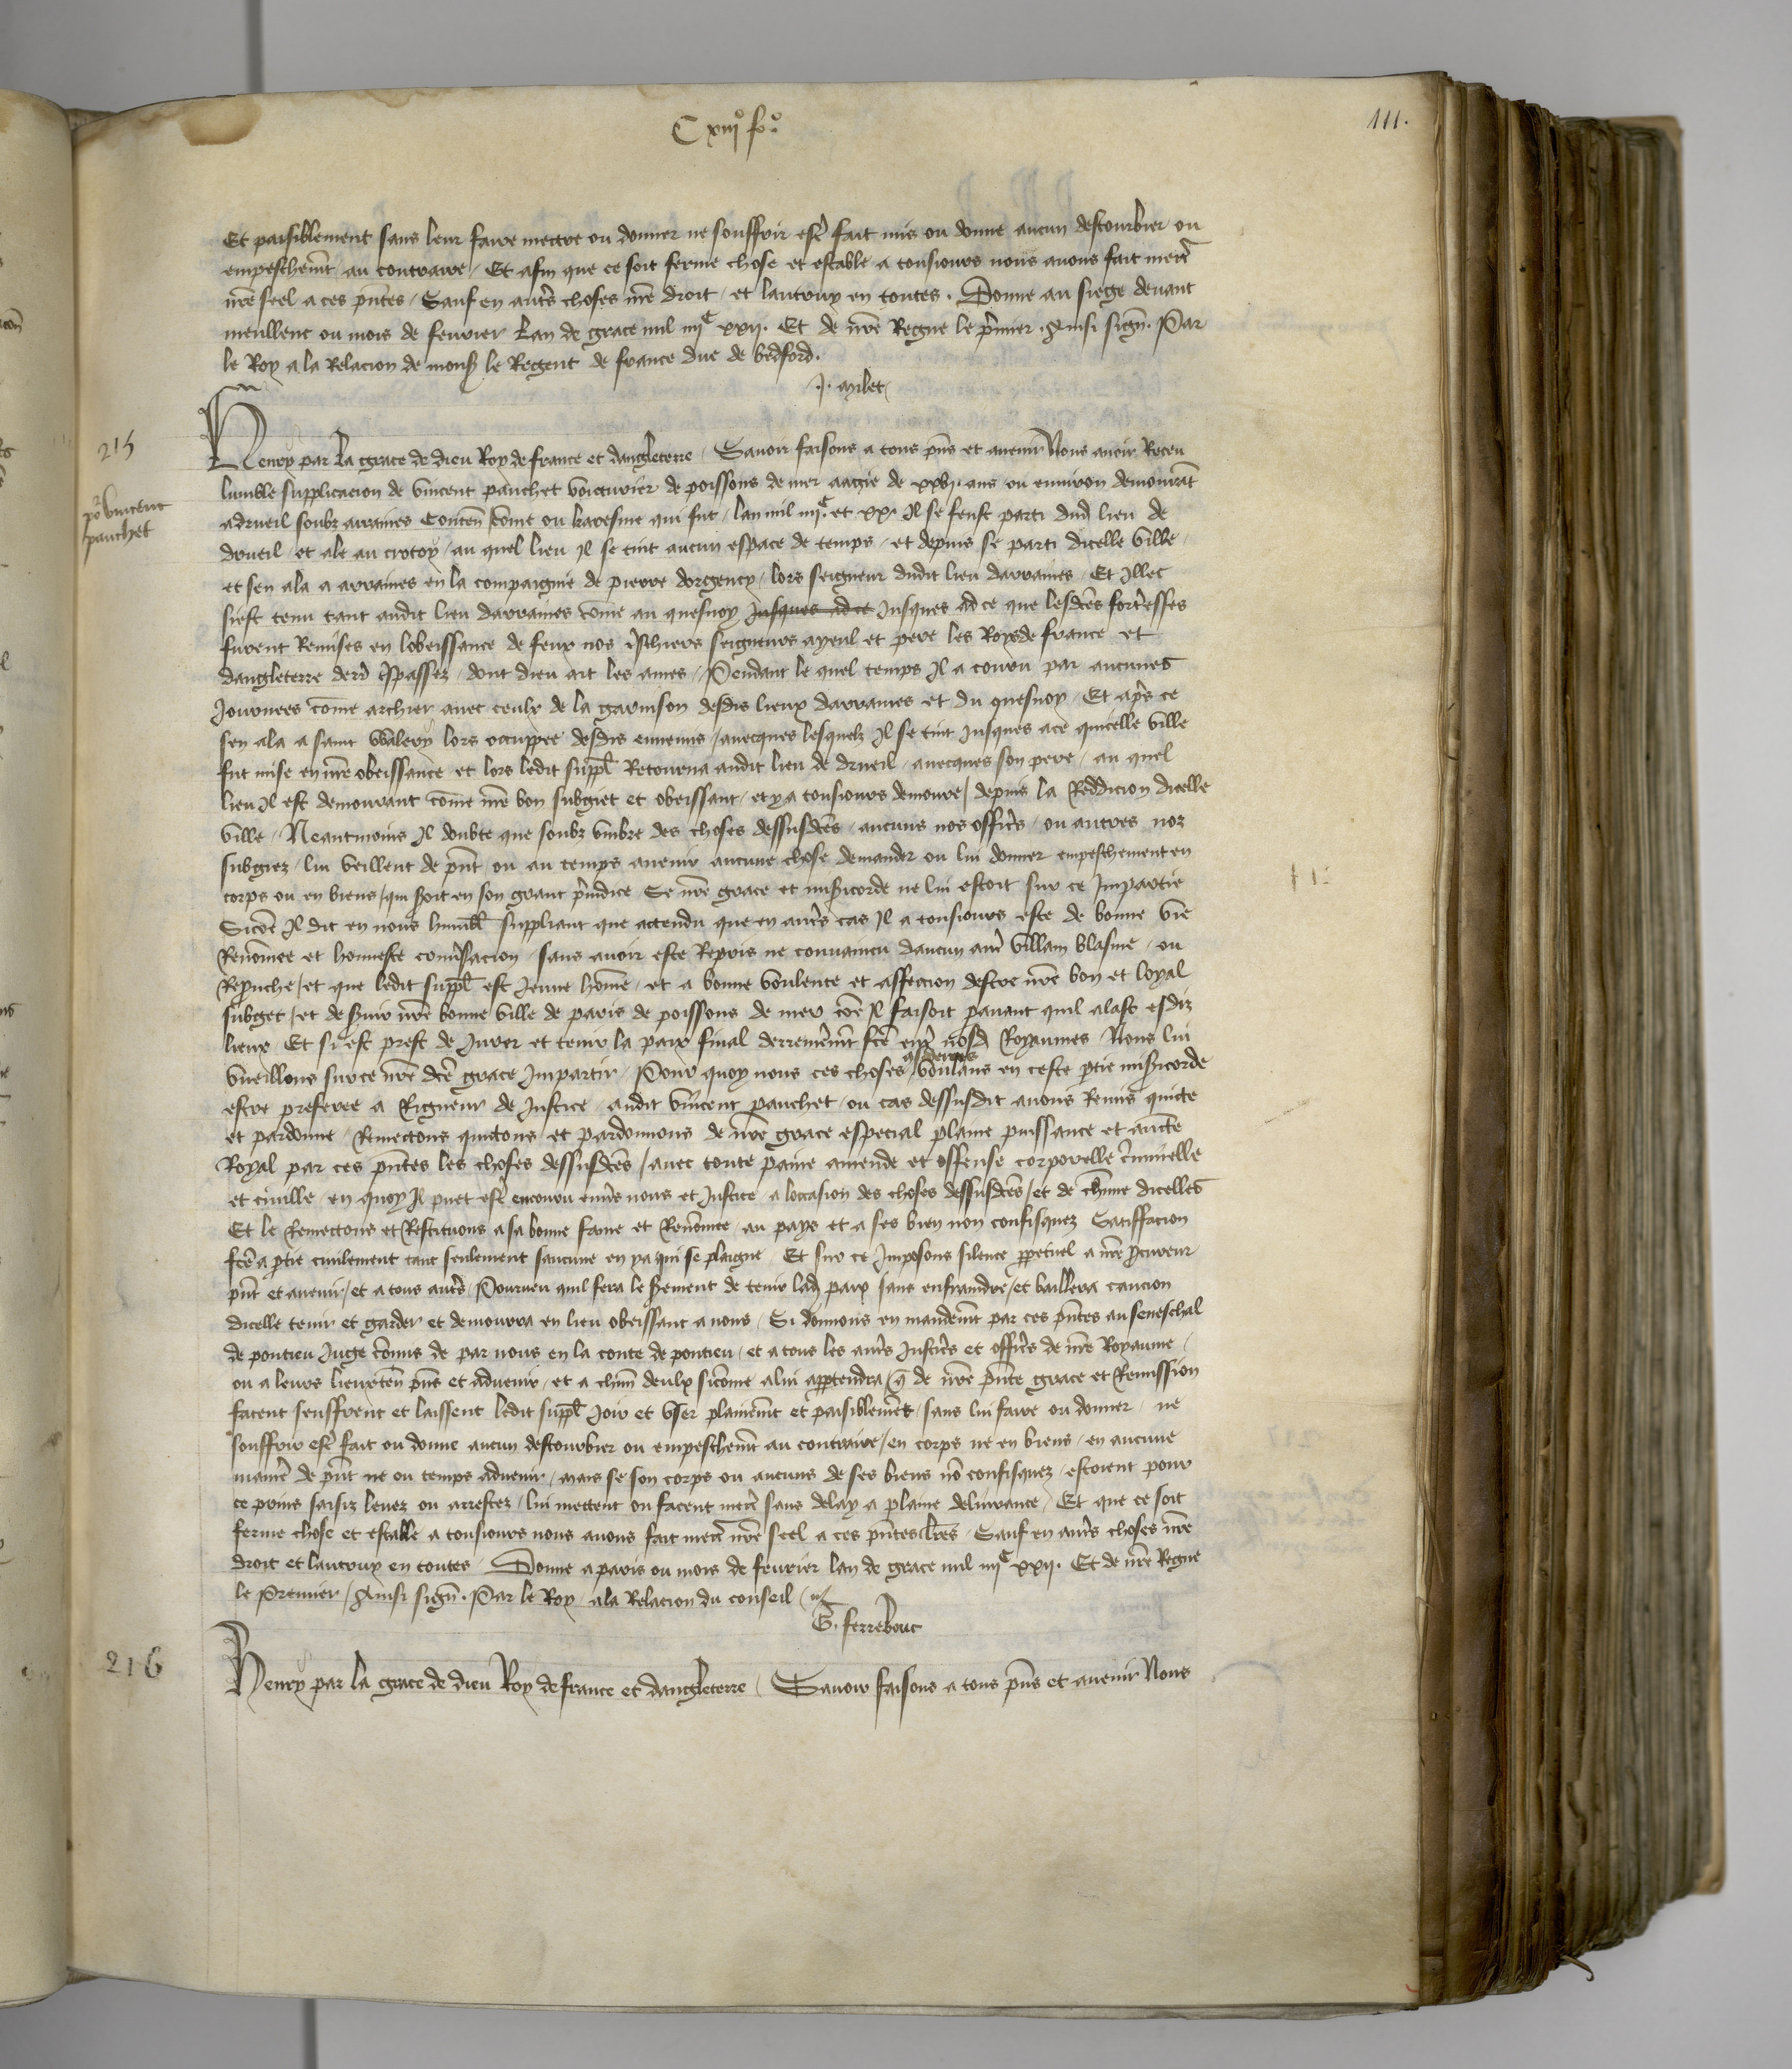 C xiiiº fº
111.
Et paisiblement sans leur faire mectre ou donner ne souffrir estr̃ fait mis ou donne aucun destourbier ou
empeschem̃t au contraire / Et afin que ce soit ferme chose et estable a tousiours nous auons fait mectr̃
nr̃e seel a ces pñtes / Sauf en autr̃s choses nr̃e droit / et lautruy en toutes . Donne au siege deuant
meullent ou mois de feurier Lan de grace mil iiijᶜ xxij . Et de nr̃e Regne le p̃mier . Ainsi sign̄ . Par
le Roy a la Relacion de mons̃ le Regent de france duc de bedford .
J . milet /
215
Henry par la grace de dieu Roy de france et dangleterre / Sauoir faisons a tous pñs et auenir Nous auoir Receu
pᵒ vincent
pauchet
lumble supplicacion de vincent pauchet voicturier de poissons de mer aagie de xxvj . ans ou enuiron demourãt
a drueil soubz arraines Conten̄ cõme ou karesme qui fut / lan mil iiijᶜ et xx . Il se feust parti dud̃ lieu de
drueil / et ale au crotoy / au quel lieu Il se tint aucun espace de temps / et depuis se parti dicelle ville /
et sen ala a arraines en la compaignie de pierre dorgency / lors seigneur dudit lieu darraines / Et Illec
siest tenu tant audit lieu darraines cõme au quesnoy Jusques ad ce Jusques ad ce que lesdc̃es fort̃esses
furent Remises en lobeissance de feux nos t̃schiers seigneurs ayeul et pere les Roys de france et
dangleterre derr̃ t̃spassez / dont dieu ait les ames / Pendant le quel temps Il a couru par aucunes
Journees cõme archier auec ceulx de la garnison desdis lieux darraines et du quesnoy / Et apr̃s ce
sen ala a saint Walery lors occuppee desdis ennemis / auecques lesquelz Il se tint Jusques ace quicelle ville
fut mise en nr̃e obeissance et lors ledit suppl̃ Retourna audit lieu de drueil / auecques son pere / au quel
lieu Il est demourant cõme nr̃e bon subgiet et obeissant / et y a tousiours demoure / depuis la Reddicion dicelle
ville / Neantmoins Il doubte que soubz vmbre des choses dessusdc̃es / aucuns nos offic̃rs / ou autres noz
subgiez / lui veillent de pñt ou au temps auenir aucune chose demander ou lui donner empeschement en
corps ou en biens / qui seroit en son grant p̃iudice Se nr̃e grace et mis̃icorde ne lui estoit sur ce Impartie
Sicõe Il dit en nous humbl̃ suppliant que attendu que en autr̃s cas Il a tousiours este de bonne vie
Renõmee et honneste conũsacion / sans auoir este Repris ne conuaincu daucun autr̃ villain blasme / ou
Reprouche / et que ledit suppl̃ est Jeune hõme / et a bonne voulente et affeccion destre nr̃e bon et loyal
subget / et de s̃uir nr̃e bonne ville de paris de poissons de mer cõe Il faisoit pauant quil alast esdiz
lieux / Et si est prest de Jurer et tenir la paix final derrenierem̃t fc̃e entr̃ nosd̃ Royaumes / Nous lui
vueillons sur ce nr̃e dc̃e grace Impartir / Pour quoy nous ces choses considerees voulans en ceste p̃tie mis̃icorde
estre preferee a Rigueur de Justice / audit vincent pauchet / ou cas dessusdit auons Remis quicte
et pardonne / Remectons quictons et pardonnons de nr̃e grace especial plaine puissance et auctc̃e
Royal par ces pñtes les choses dessusdc̃es / auec toute paine amende et offense corporelle c̃iminelle
et ciuille / en quoy Il puet estr̃ encouru enuers nous et Justice / a loccasion des choses dessusdc̃es / et de ch̃une dicelles
Et le Remectons et Restituons a sa bonne fame et Renõmee / au pays et a ses bien non confisquez Satisfacion
fc̃e a p̃tie ciuilement tant seulement saucune en ya qui se plaigne / Et sur ce Imposons silence p̃petuel a nr̃e p̃cureur
pñt et auenir / et a tous autr̃s / Pourueu quil fera le s̃ement de tenir lad̃ paix sans enfraindre / et baillera caucion
dicelle tenir et garder et demourra en lieu obeissant a nous / Si donnons en mandem̃t par ces pñtes au seneschal
de pontieu Juge cõmis de par nous en la conte de pontieu / et a tous les autr̃s Justic̃rs et offic̃rs de nr̃e Royaume /
ou a leurs lieuxten̄ pñs et aduenir / et a ch̃un deulx sicõme a lui app̃tendra / q̃ de nr̃e pñte grace et Remission
facent seuffrent et laissent ledit suppl̃ Joir et vser plainem̃t et paisiblemẽt / sans lui faire ou donner / ne
souffrir estr̃ fait ou donne aucun destourbier ou empeschem̃t au contraire / en corps ne en biens / en aucune
manier̃ de pñt ne ou temps aduenir / mais se son corps ou aucuns de ses biens nõ confisquez / estoient pour
ce prins saisiz leuez ou arrestez / lui mectent ou facent mectr̃ sans delay a plaine deliurance / Et que ce soit
ferme chose et estable a tousiours nous auons fait mectr̃ nr̃e seel a ces pñtes lr̃es / Sauf en autr̃s choses nr̃e
droit et lautruy en toutes / Donne a paris ou mois de feurier lan de grace mil iiijᶜ xxij . Et de nr̃e Regne
le Premier / Ainsi sign̄ . Par le Roy / a la Relacion du conseil /
G . ferrebouc
216
Henry par la grace de dieu Roy de france et dangleterre / Sauoir faisons a tous pñs et auenir Nous